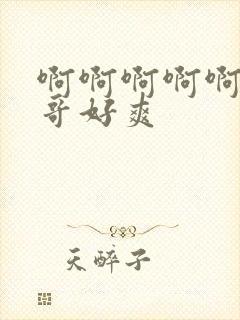 啊啊啊啊啊
哥好爽
天醉子